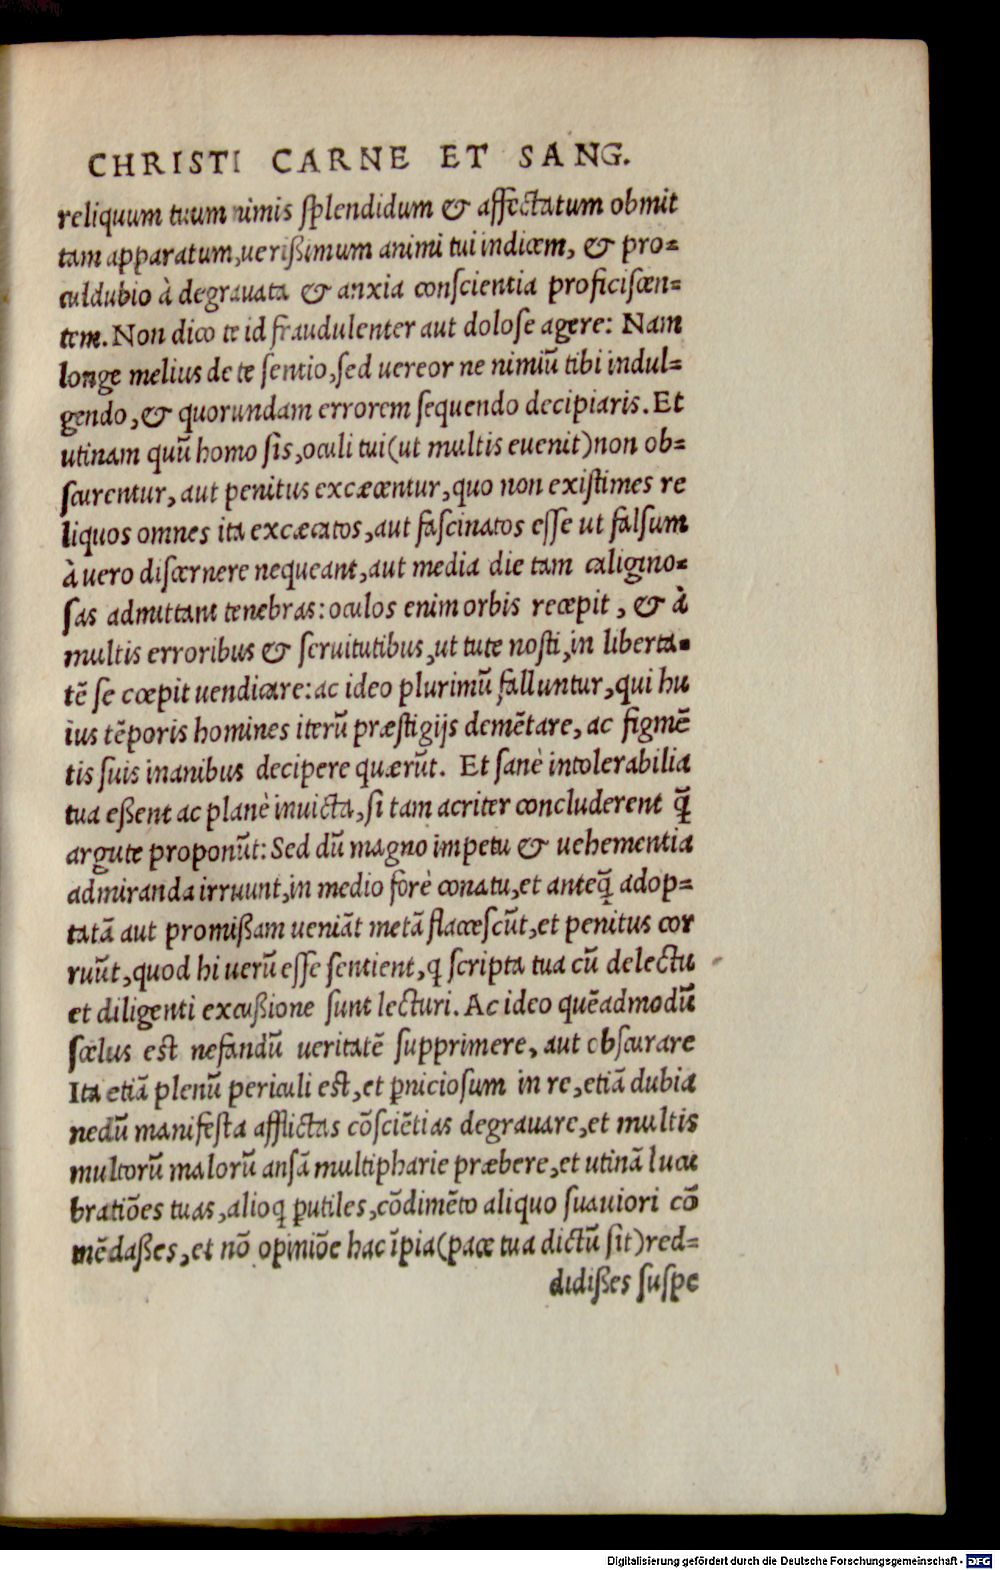 CHRISTI CARNE ET SANG.
reliquum tuum nimis splendidum & affectatum obmit
tam apparatum,uerißimum animi tui indicem, & pro=
culdubio à degrauata & anxia conscientia proficiscen=
tem. Non dico te id fraudulenter aut dolose agere: Nam
longe melius de te sentio,sed uereor ne nimiũ tibi indul=
gendo,& quorundam errorem sequendo decipiaris. Et
utinam quũ homo sis,oculi tui(ut multis euenit)non ob=
scurentur, aut penitus excæcentur,quo non existimes re
liquos omnes ita excæcatos,aut fascinatos esse ut falsum
à uero discernere nequeant,aut media die tam caligino=
sas admittant tenebras: oculos enim orbis recepit, & à
multis erroribus & seruitutibus,ut tute nosti,in liberta=
tẽ se cœpit uendicare: ac ideo plurimũ falluntur,qui hu
ius tẽporis homines iterũ præstigijs demẽtare, ac figmẽ
tis suis inanibus decipere quærũt. Et sanè intolerabilia
tua eßent ac planè inuicta,si tam acriter concluderent q̃
argute proponũt: Sed dũ magno impetu & uehementia
admiranda irruunt,in medio forè conatu,et anteq̃ adop=
tatã aut promißam ueniãt metã flaccescũt,et penitus cor
ruũt,quod hi uerũ esse sentient,q̃ scripta tua cũ delectu
et diligenti excußione sunt lecturi. Ac ideo quẽadmodũ
scelus est nefandũ ueritatẽ supprimere, aut obscurare
Ita etiã plenũ periculi est,et ꝑniciosum in re,etiã dubia
nedũ manifesta afflictas cõsciẽtias degrauare,et multis
multorũ malorũ ansã multipharie præbere,et utinã lucu
bratiões tuas,alioq ꝑutiles,cõdimẽto aliquo suauiori cõ
mẽdaßes,et nõ opiniõe hac ĩpia(pace tua dictũ sit)red=
didißes suspe
Digitalisierung gefördert durch die Deutsche Forschungsgemeinschaft - DFG